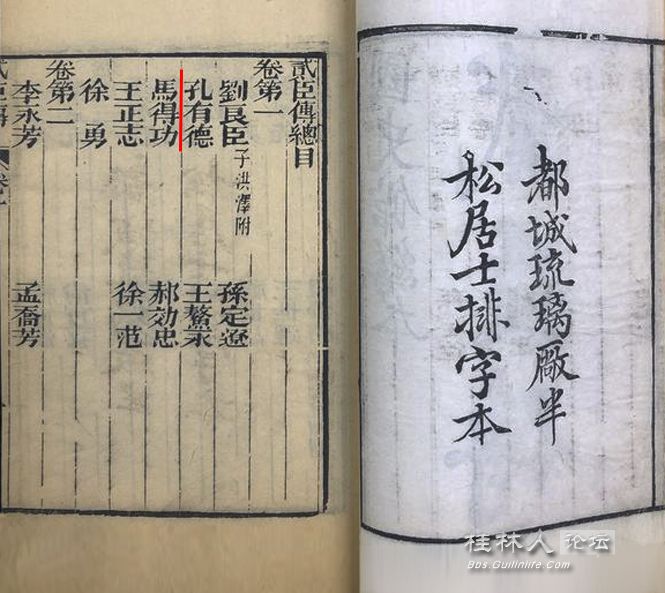 都城琉璃厰半
松居士排字本
貳臣傳總目
卷第一
劉良臣 子洪澤附 孫定遼
孔有德 王鰲永
馬得功 郝効忠
王正志 徐一范
徐勇
卷第二
李永芳 孟喬芳
貳臣傳
桂林人论坛
Bbs.Guilinlife.Com